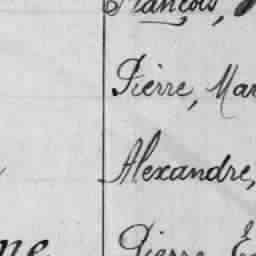 François,
Pierre, Mar
Alexandre,
ne Pierre E